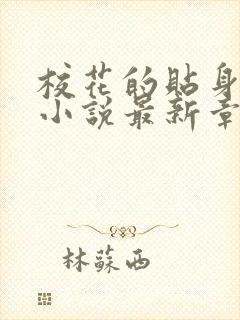 校花的貼身
小說最新章
林蘇西